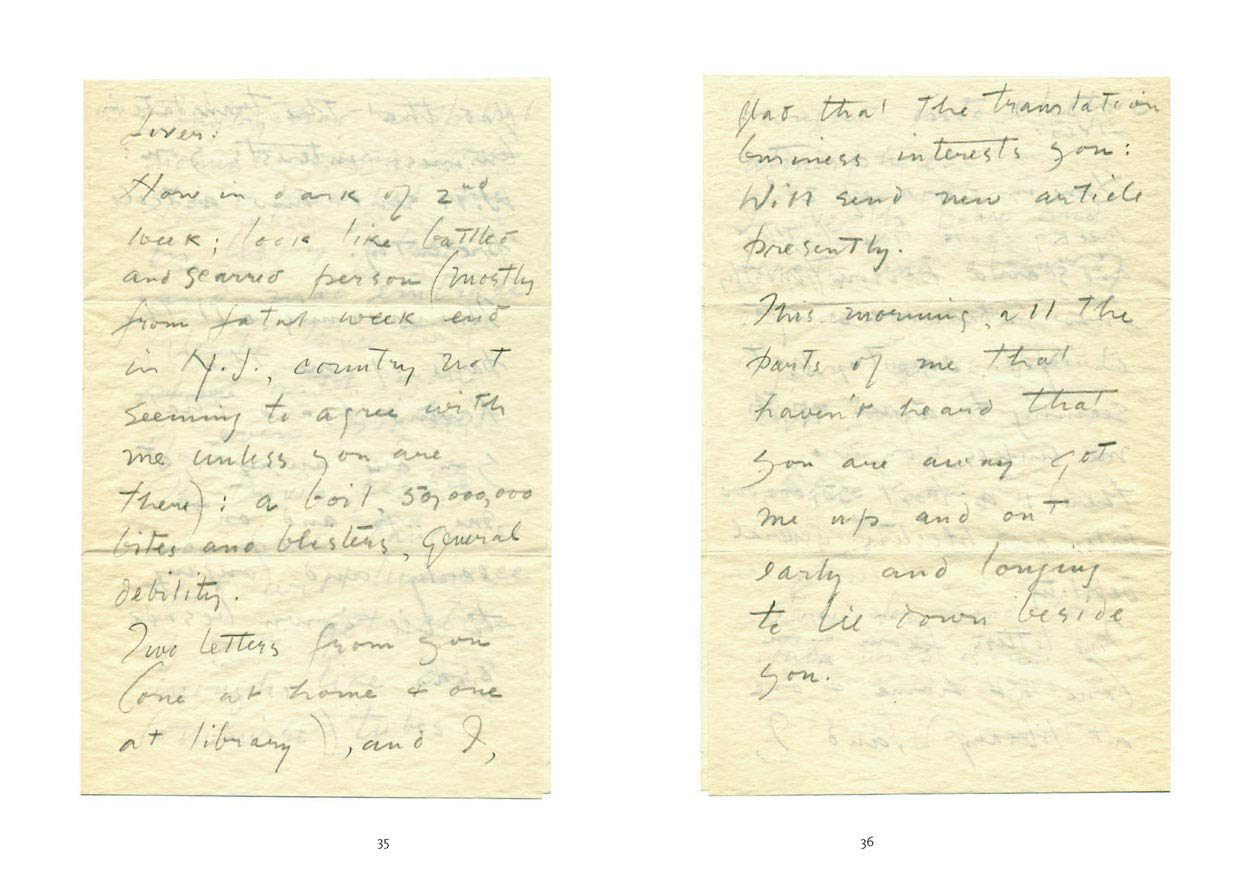 Liver:
Now in dark of 2nd
week; look like battled
and scarred person (mostly
from fatal week end
in N.J., country not
seeming to agree with
me unless you are
there): a boil, 50,000,000
bites and blisters, general
debility.
Two letters from you
(one at home + one
at library), and I,
35
glad that the translation
business interests you:
Will send new article
presently.
This morning, all the
parts of me that
haven't heard that
you are away got
me up and out
early and longing
to lie down beside
you.
36